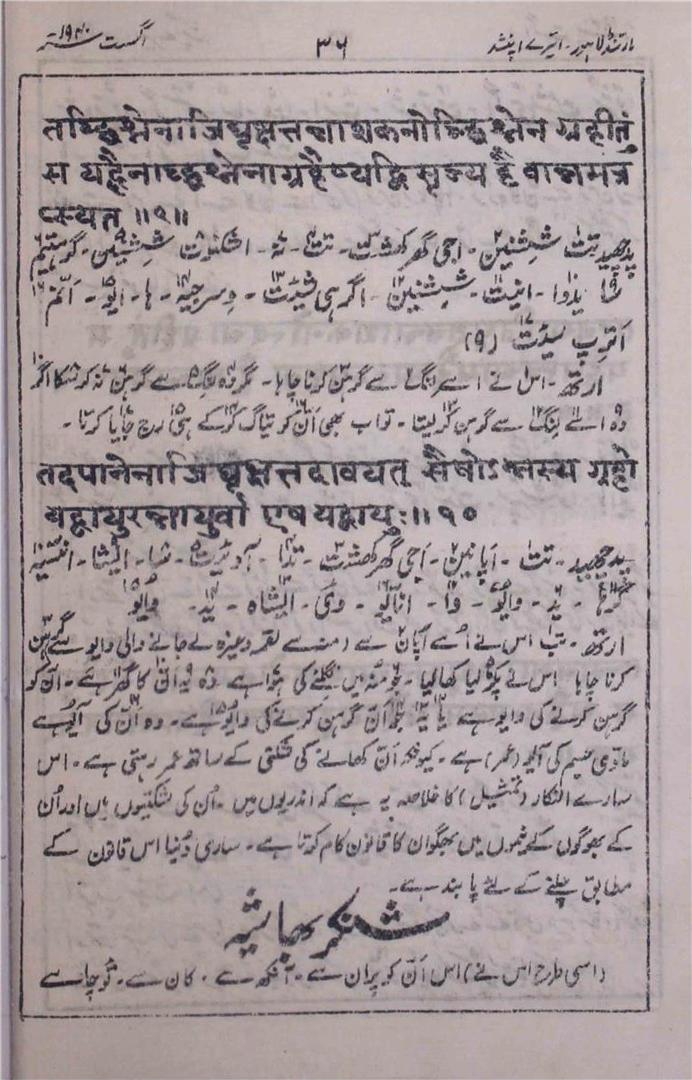 مارتنڈ لاہور - ایترے اپنشد ۳۶ اگست سنہ ۱۹۴۰
तच्छिश्नेनाजिघृक्षत्तन्नाशक्नोच्छिश्नेन ग्रहीतुं
स यद्धैनच्छिश्नेनाग्रहैष्यद्विसृज्य हैवान्नमत्र
प्स्यत ॥९॥
پدچھید تت ششنین - اجی گھرکھشت - تت - نہ - اشکنوت ششنین - گرہیتم
سا یدوا - اینت - ششنین - اگرہی شیت - وسرجیہ - ہا - ایو - انم
اترپ سیت (۹)
ارتھ - اس نے اسے لنگ سے گرہن کرنا چاہا - مگر وہ لنگ سے گرہن نہ کر سکا اگر
وہ اسے لنگ سے گرہن کر لیتا - تو اب بھی ان کو تیاگ کر کے ہی رج جایا کرتا -
तदपानेनाजिघृक्षत्तदावयत् सैषोऽन्नस्य ग्रहो
यद्वायुरन्नायुर्वा एष यद्वायुः॥१०
پدچھید - تت - اپانین - اجی گھرکھشت - تدا - آویت - سا - ایشا - انسیہ
گرہا - ید - وایو - وا - انایو - وی - ایشاہ - ید - وایو
ارتھ - تب اس نے اُسے اپان سے (منہ سے لقمہ وغیرہ لے جانے والی وایو سے گرہن
کرنا چاہا اس نے پکڑ لیا کھا لیا - جو منہ میں نگلنے کی ہوا ہے وہ یہ ان کا گھر ہے - ان کو
گرہن کرنے کی وایو ہے یا یہ جو ان گرہن کرنے کی وایو ہے - وہ ان کی آیو ہے
مادی جسم کی آیو (عمر) ہے - کیونکہ ان کھانے کی شکتی کے ساتھ عمر رہتی ہے - اس
سارے النکار (تمثیل) کا خلاصہ یہ ہے کہ اندریوں میں - اُن کی شکتیوں میں اور اُن
کے بھوگوں کے نیموں میں بھگوان کا قانون کام کرتا ہے - ساری دُنیا اس قانون کے
مطابق چلنے کے لئے پابند ہے -
شنکر بھاشیہ
(اسی طرح اس نے) اس ان کو پران سے - آنکھ سے - کان سے - توچا سے